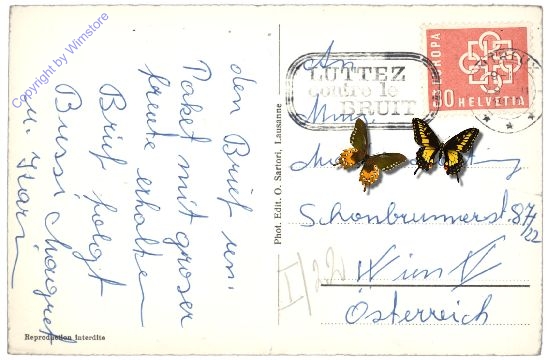 Copyright by Wimstore
den Brief un:
Paket mit groser
freute erhalten
Brief folgt
Bussi Maigret
u. Karin
Reproduction interdite
Phot. Edit. O. Sartori, Lausanne
LUTTEZ
contre le
BRUIT
EUROPA
50 HELVETIA
An
Schönbrunnerst. 87/22
Wien V
Österreich